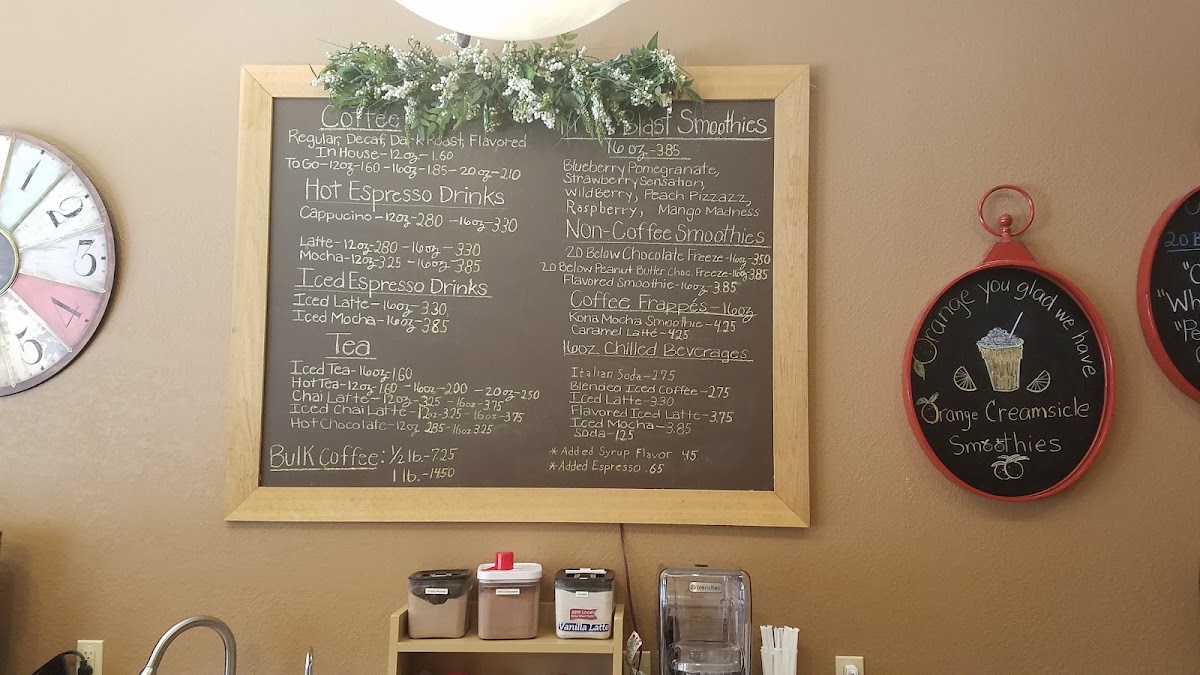 Coffee
Regular, Decaf, Dark Roast, Flavored
In House-12oz-1.60
To Go-12oz-1.60 -16oz-1.85-20oz-2.10
Hot Espresso Drinks
Cappucino-12oz-2.80 -16oz-3.30
Latte-12oz-2.80 -16oz-3.30
Mocha-12oz-3.25 -16oz-3.85
Iced Espresso Drinks
Iced Latte-16oz-3.30
Iced Mocha-16oz-3.85
Tea
Iced Tea-16oz-1.60
Hot Tea-12oz-1.60 -16oz-2.00 -20oz-2.50
Chai Latte-12oz-3.25 -16oz-3.75
Iced Chai Latte-12oz-3.25 -16oz-3.75
Hot Chocolate-12oz 2.85-16oz 3.25
Bulk Coffee: 1/2 lb.-7.25
1 lb.-14.50
Blast Smoothies
16 oz.-3.85
Blueberry Pomegranate,
Strawberry Sensation,
WildBerry, Peach Pizzazz,
Raspberry, Mango Madness
Non-Coffee Smoothies
20 Below Chocolate Freeze-16oz-3.50
20 Below Peanut Butter Choc. Freeze-16oz3.85
Flavored Smoothie-16oz-3.85
Coffee Frappés-16oz
Kona Mocha Smoothie-4.25
Caramel Latté-4.25
16oz Chilled Beverages
Italian Soda-2.75
Blended Iced Coffee-2.75
Iced Latte-3.30
Flavored Iced Latte-3.75
Iced Mocha-3.85
Soda-1.25
*Added Syrup Flavor .45
*Added Espresso .65
Orange you glad we have
Orange Creamsicle
Smoothies
20 B
"Wh
"Pe
1
2
3
4
5
NEW LOOK!
Vanilla Latte
blendtec